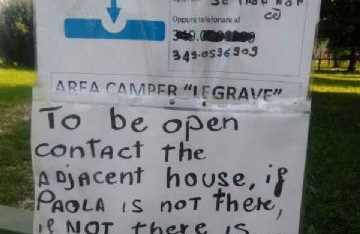 Oppure telefonare al
349.0596909
AREA CAMPER "LEGRAVE"
To be open
contact the
ADJacent house, if
PAOLA IS NOT there,
if NOT there is